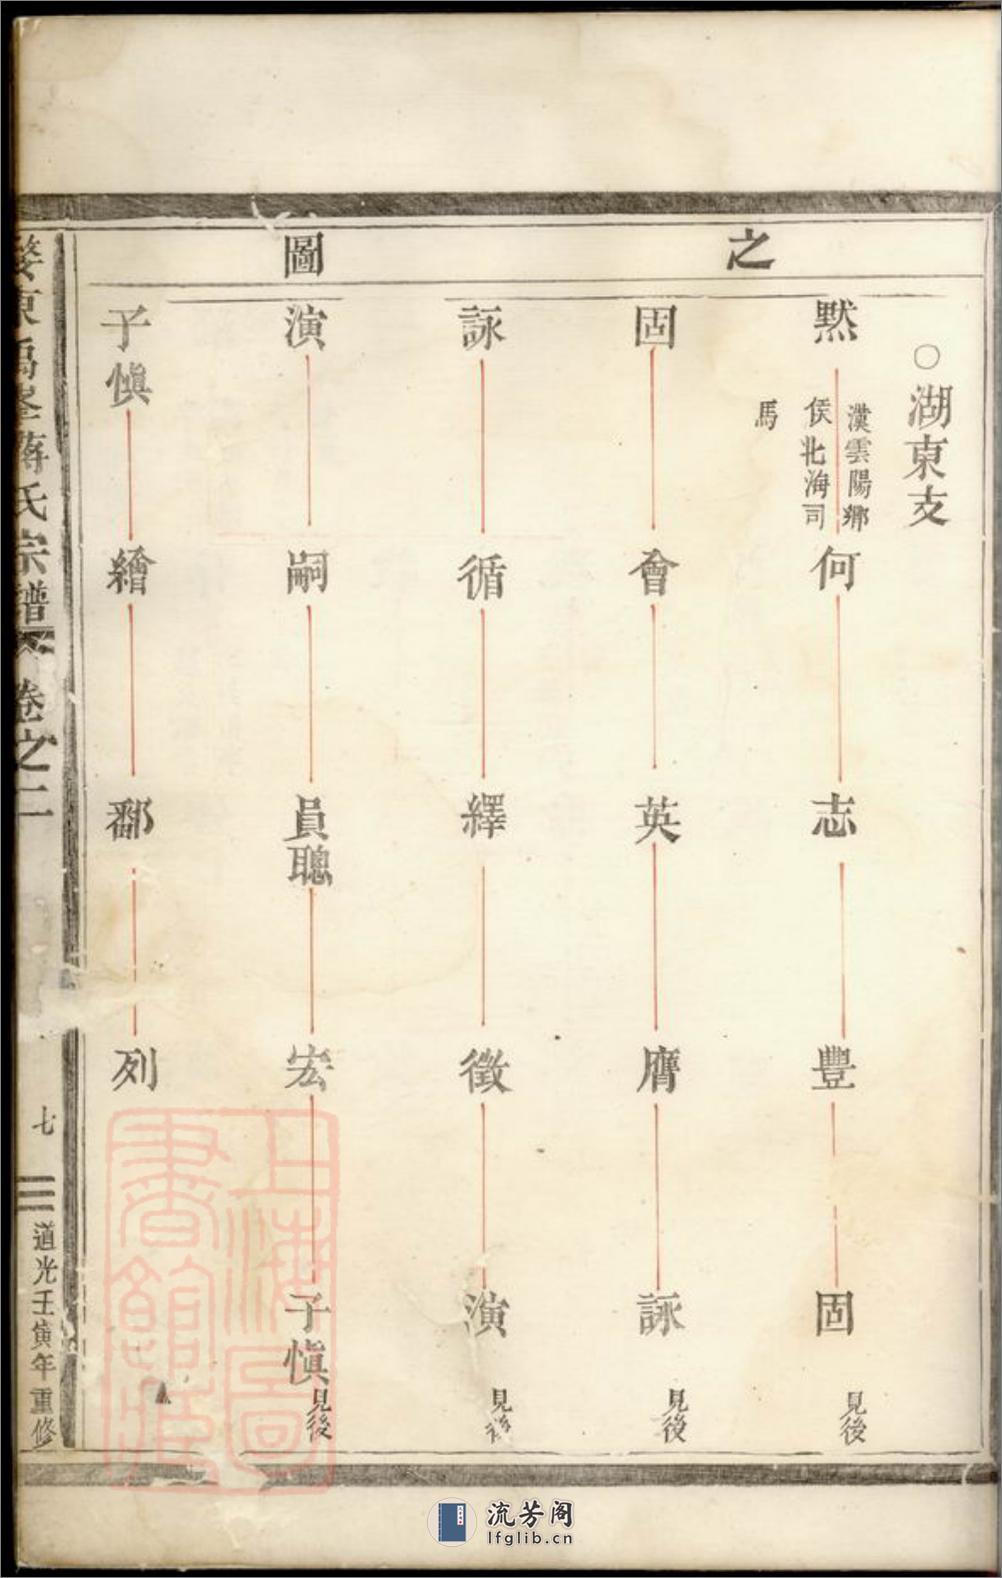 之
圖
○湖東支
默
漢雲陽鄉
侯北海司
馬
何
志
豐
固
見後
固
會
英
膺
詠
見後
詠
循
繹
徵
演
見後
演
嗣
員聰
宏
子慎
見後
子慎
繪
鄱
列
婺東禹峯蔣氏宗譜
卷之二
七
道光壬寅年重修
上海圖書館藏
流芳阁
lfglib.cn